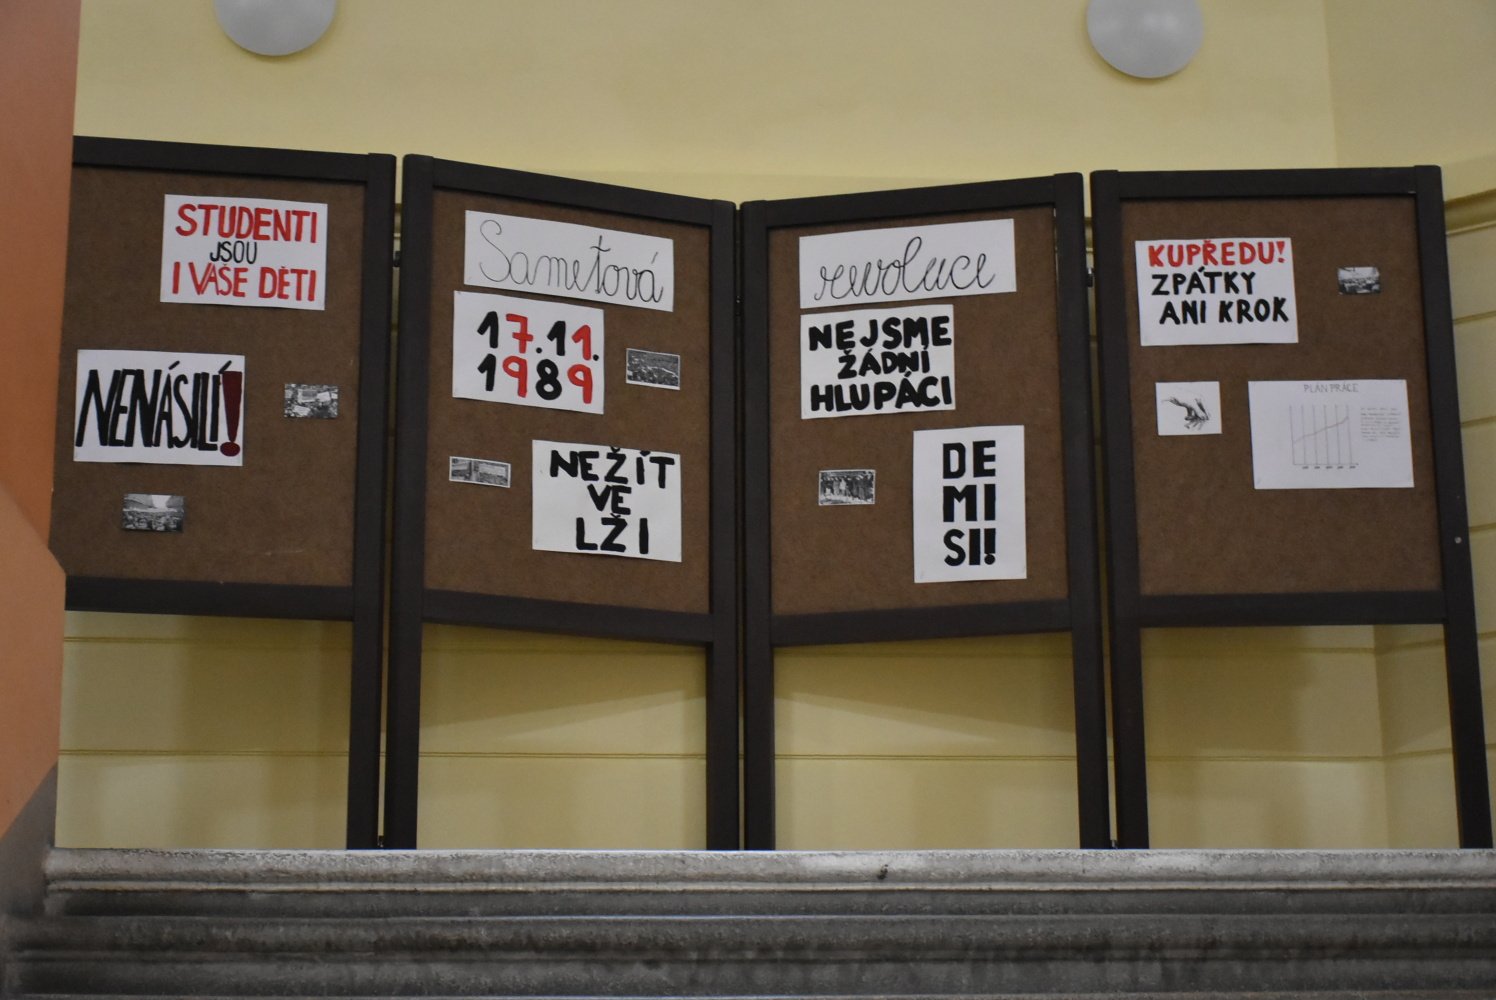 STUDENTI
JSOU
I VAŠE DĚTI
NENÁSILÍ!
Sametová
17.11.
1989
NEŽÍT
VE
LŽI
revoluce
NEJSME
ŽÁDNÍ
HLUPÁCI
DE
MI
SI!
KUPŘEDU!
ZPÁTKY
ANI KROK
PLÁN PRÁCE